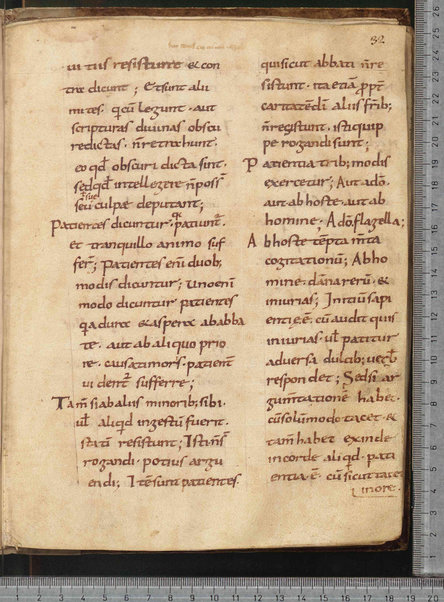 32
ui tius resisterre & con
tra dicunt; Et sunt alii
mites. qui cum legunt. aut
scripturas diuinas obscu
re dictas. non retrahunt.
eo quod obscuri dicta sint.
sed quod intellegere non possunt
seu culpae deputant;
Patientes dicuntur. qui patiunt.
et tranquillo animo suf
fer; Patientes enim duob;
modis dicuntur; Uno enim
modo dicuntur patientes
qui a dura & aspera ab abba
te. aut ab aliquo prio
re. causa timoris. patient
ui dent sufferre;
Tam si ab aliis minorib; sibi.
uel aliquid ingestum fuerit.
statim resistunt; Isti non sunt
rogandi. potius argu
endi; Item sunt patientes.
qui sicut abbati non re
sistunt. ita etiam propter
caritatem dei aliis fratrib;
non resistunt. isti quip
pe rogandi sunt;
Patientia trib; modis
exercetur; Aut a deo.
aut ab hoste. aut ab
homine; A deo flagella;
Ab hoste tempta menta
cogitationum; Ab ho
mine. damna rerum. &
iniurias; Initium sapi
entiae e. cum audit quis
iniurias. uel patitur
aduersa. dulcib; uerb
respondet; Sed si ar
gumentatione habet.
cum solummodo tacet. &
tamen habet exinde
in corde aliquid. pati
entia e. cum sicut tacet
in ore.